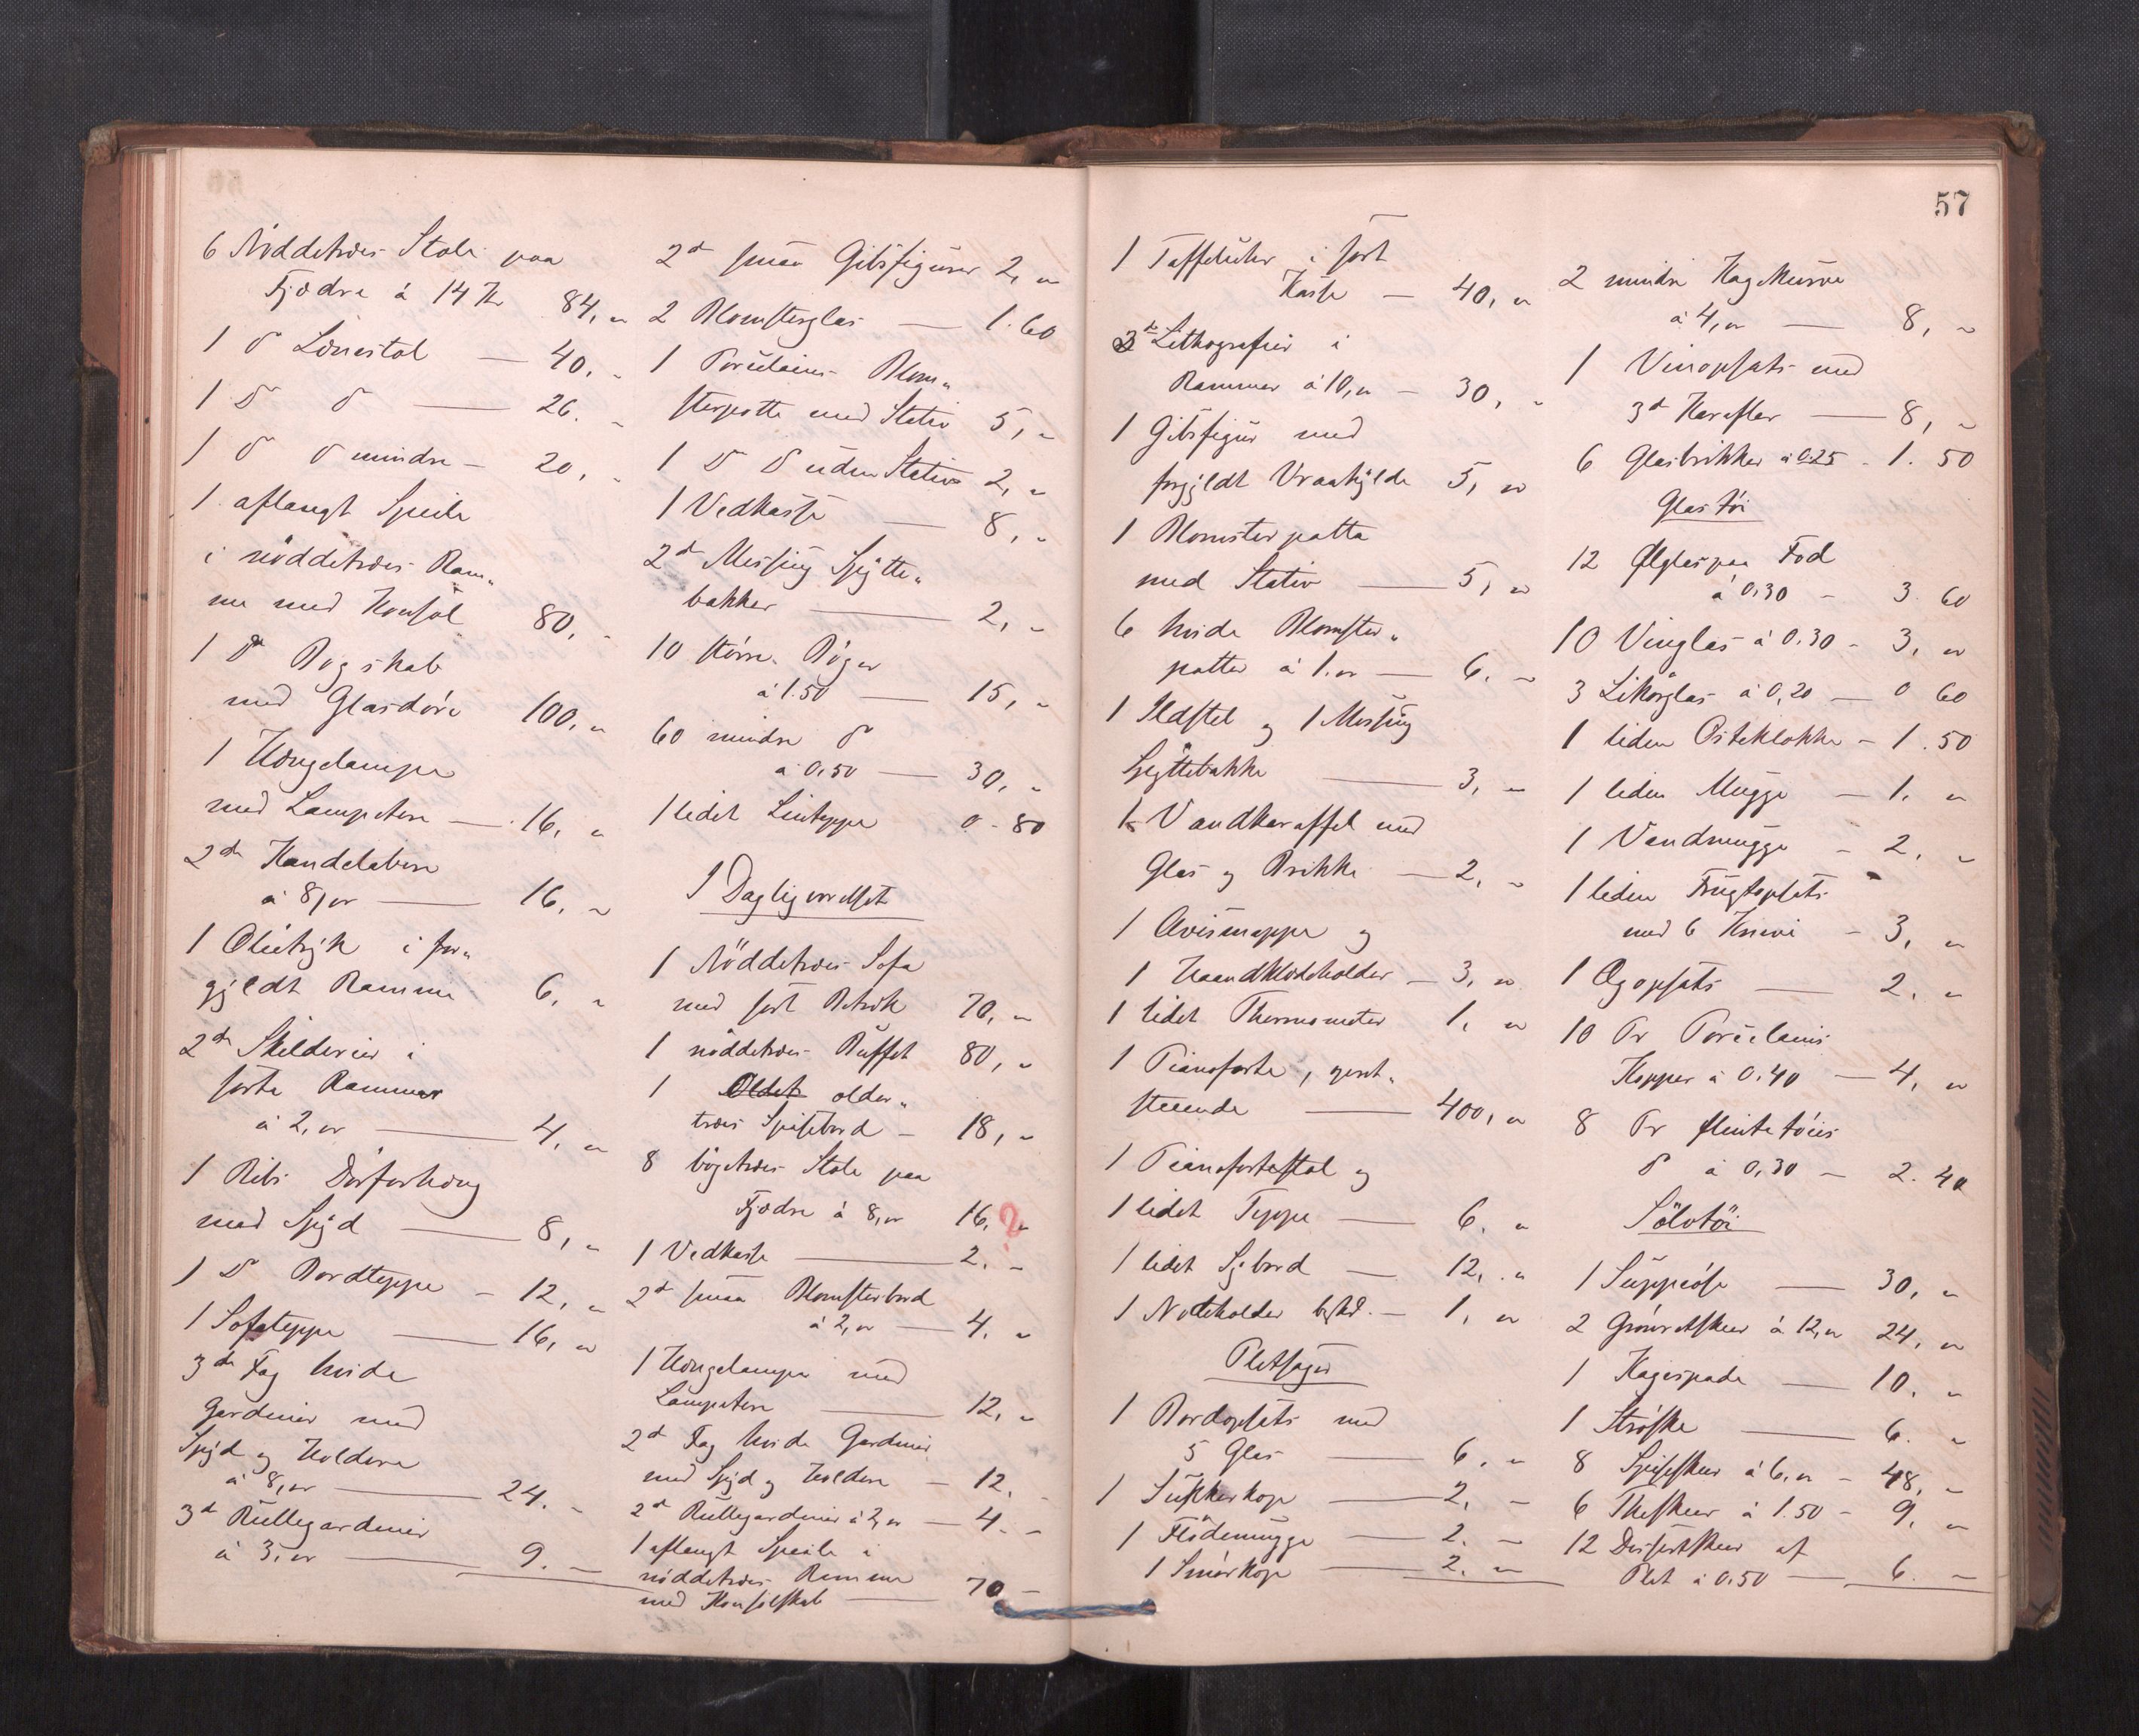 6 Nöddetræs Stole paa
Fjædre á 14 Kr 84, "
1 d° Lænestol — 40. "
1 d° d° — 26. "
1 d° d° mindre — 20, "
1 aflangt Speile
i nöddetræs Ram„
me med Konsol 80, "
1 d° Bogskab
med Glasdöre 100, "
1 Hængelampe
med Lampetter — 16, "
2de Kandelabere
á 8, " — 16, "
1 Olietryk i for„
gyldt Ramme 6, "
2de Skilderier i
sorte Rammer
á 2, " — 4, "
1 Ribs Dörforhæng
med Spyd — 8, "
1 d° Bordteppe — 12, "
1 Sofateppe — 16, "
3de Fag hvide
Gardiner med
Spyd og Holdere
á 8, " — 24. "
3de Rullegardiner
á 3, " — 9. "
2de smaa Gibsfigurer 2, "
2 Blomsterglas — 1.60
1 Porcelains Blom„
sterpotte med Stativ 5, "
1 d° d° uden Stativ 2, "
1 Vedkasse — 8, "
2de Messing Spytte„
bakker — 2, "
10 större Böger
á 1.50 — 15, "
60 mindre d°
á 0,50 — 30, "
1 lidet Linteppe 0 - 80
I Dagligværelset
1 Nöddetræs Sofa
med sort Betræk 70, "
1 nöddetræs Buffet 80, "
1 Oldet older„
træs Spisebord — 18, "
8 bögetræs Stole paa
Fjædre á 8, " 16, " ?
1 Vedkasse — 2. "
2de smaa Blomsterbord
á 2, " — 4. "
1 Hængelampe med
Lampetter — 12, "
2de Fag hvide Gardiner
med Spyd og Holdere — 12,
2de Rullegardiner á 2, " — 4. "
1 aflangt Speile i
nöddetræs Ramme
med Konsolskab — 70 —
57
1 Taffeluhr i sort
Kasse — 40, "
3de Lithografier i
Rammer á 10, " — 30, "
1 Gibsfigur med
forgyldt Vraahylde 5, "
1 Blomsterpotte
med Stativ — 5, "
6 hvide Blomster„
potter á 1. " — 6. "
1 Ildstel og 1 Messing
Spyttebakke — 3, "
1 Vandkaraffel med
Glas og Brikke — 2, "
1 Avismappe og
1 Haandklædeholder — 3, "
1 lidet Thermometer 1, "
1 Pianoforte, opret„
staaende — 400, "
1 Pianofortestol og
1 lidet Teppe — 6. "
1 lidet Sybord — 12, "
1 Nodeholder — 1, "
Pletsager
1 Bordopsats med
5 Glas — 6, "
1 Sukkerkop — 2, "
1 Flödemugge — 2. "
1 Smörkop — 2. "
2 mindre
á 4, " — 8, "
1 Vinopsats med
3de Karafler — 8, "
6 Glasbrikker á 0.25 - 1. 50
Glastöi
12 Ölglas paa Fod
á 0,30 - 3. 60
10 Vinglas á 0.30 - 3, "
3 Likörglas á 0,20 — 0 60
1 liden Osteklokke - 1.50
1 liden Mugge — 1. "
1 Vandmugge - 2. "
1 liden Frugtopsats
med 6 Knive - 3, "
1 Ægopsats — 2. "
10 Pr Porcelains
Kopper á 0.40 — 4, "
8 Pr flintetöies
d° á 0,30 — 2. 40
Sölvtöi
1 Suppeöse — 30, "
2 Grönretskeer á 12, " 24, "
1 Kagespade — 10. "
1 Ströske — 6. "
8 Spiseskeer á 6, " — 48, "
6 Theskeer á 1.50 — 9, "
12 Dessertskeer af
Plet á 0.50 — 6. "